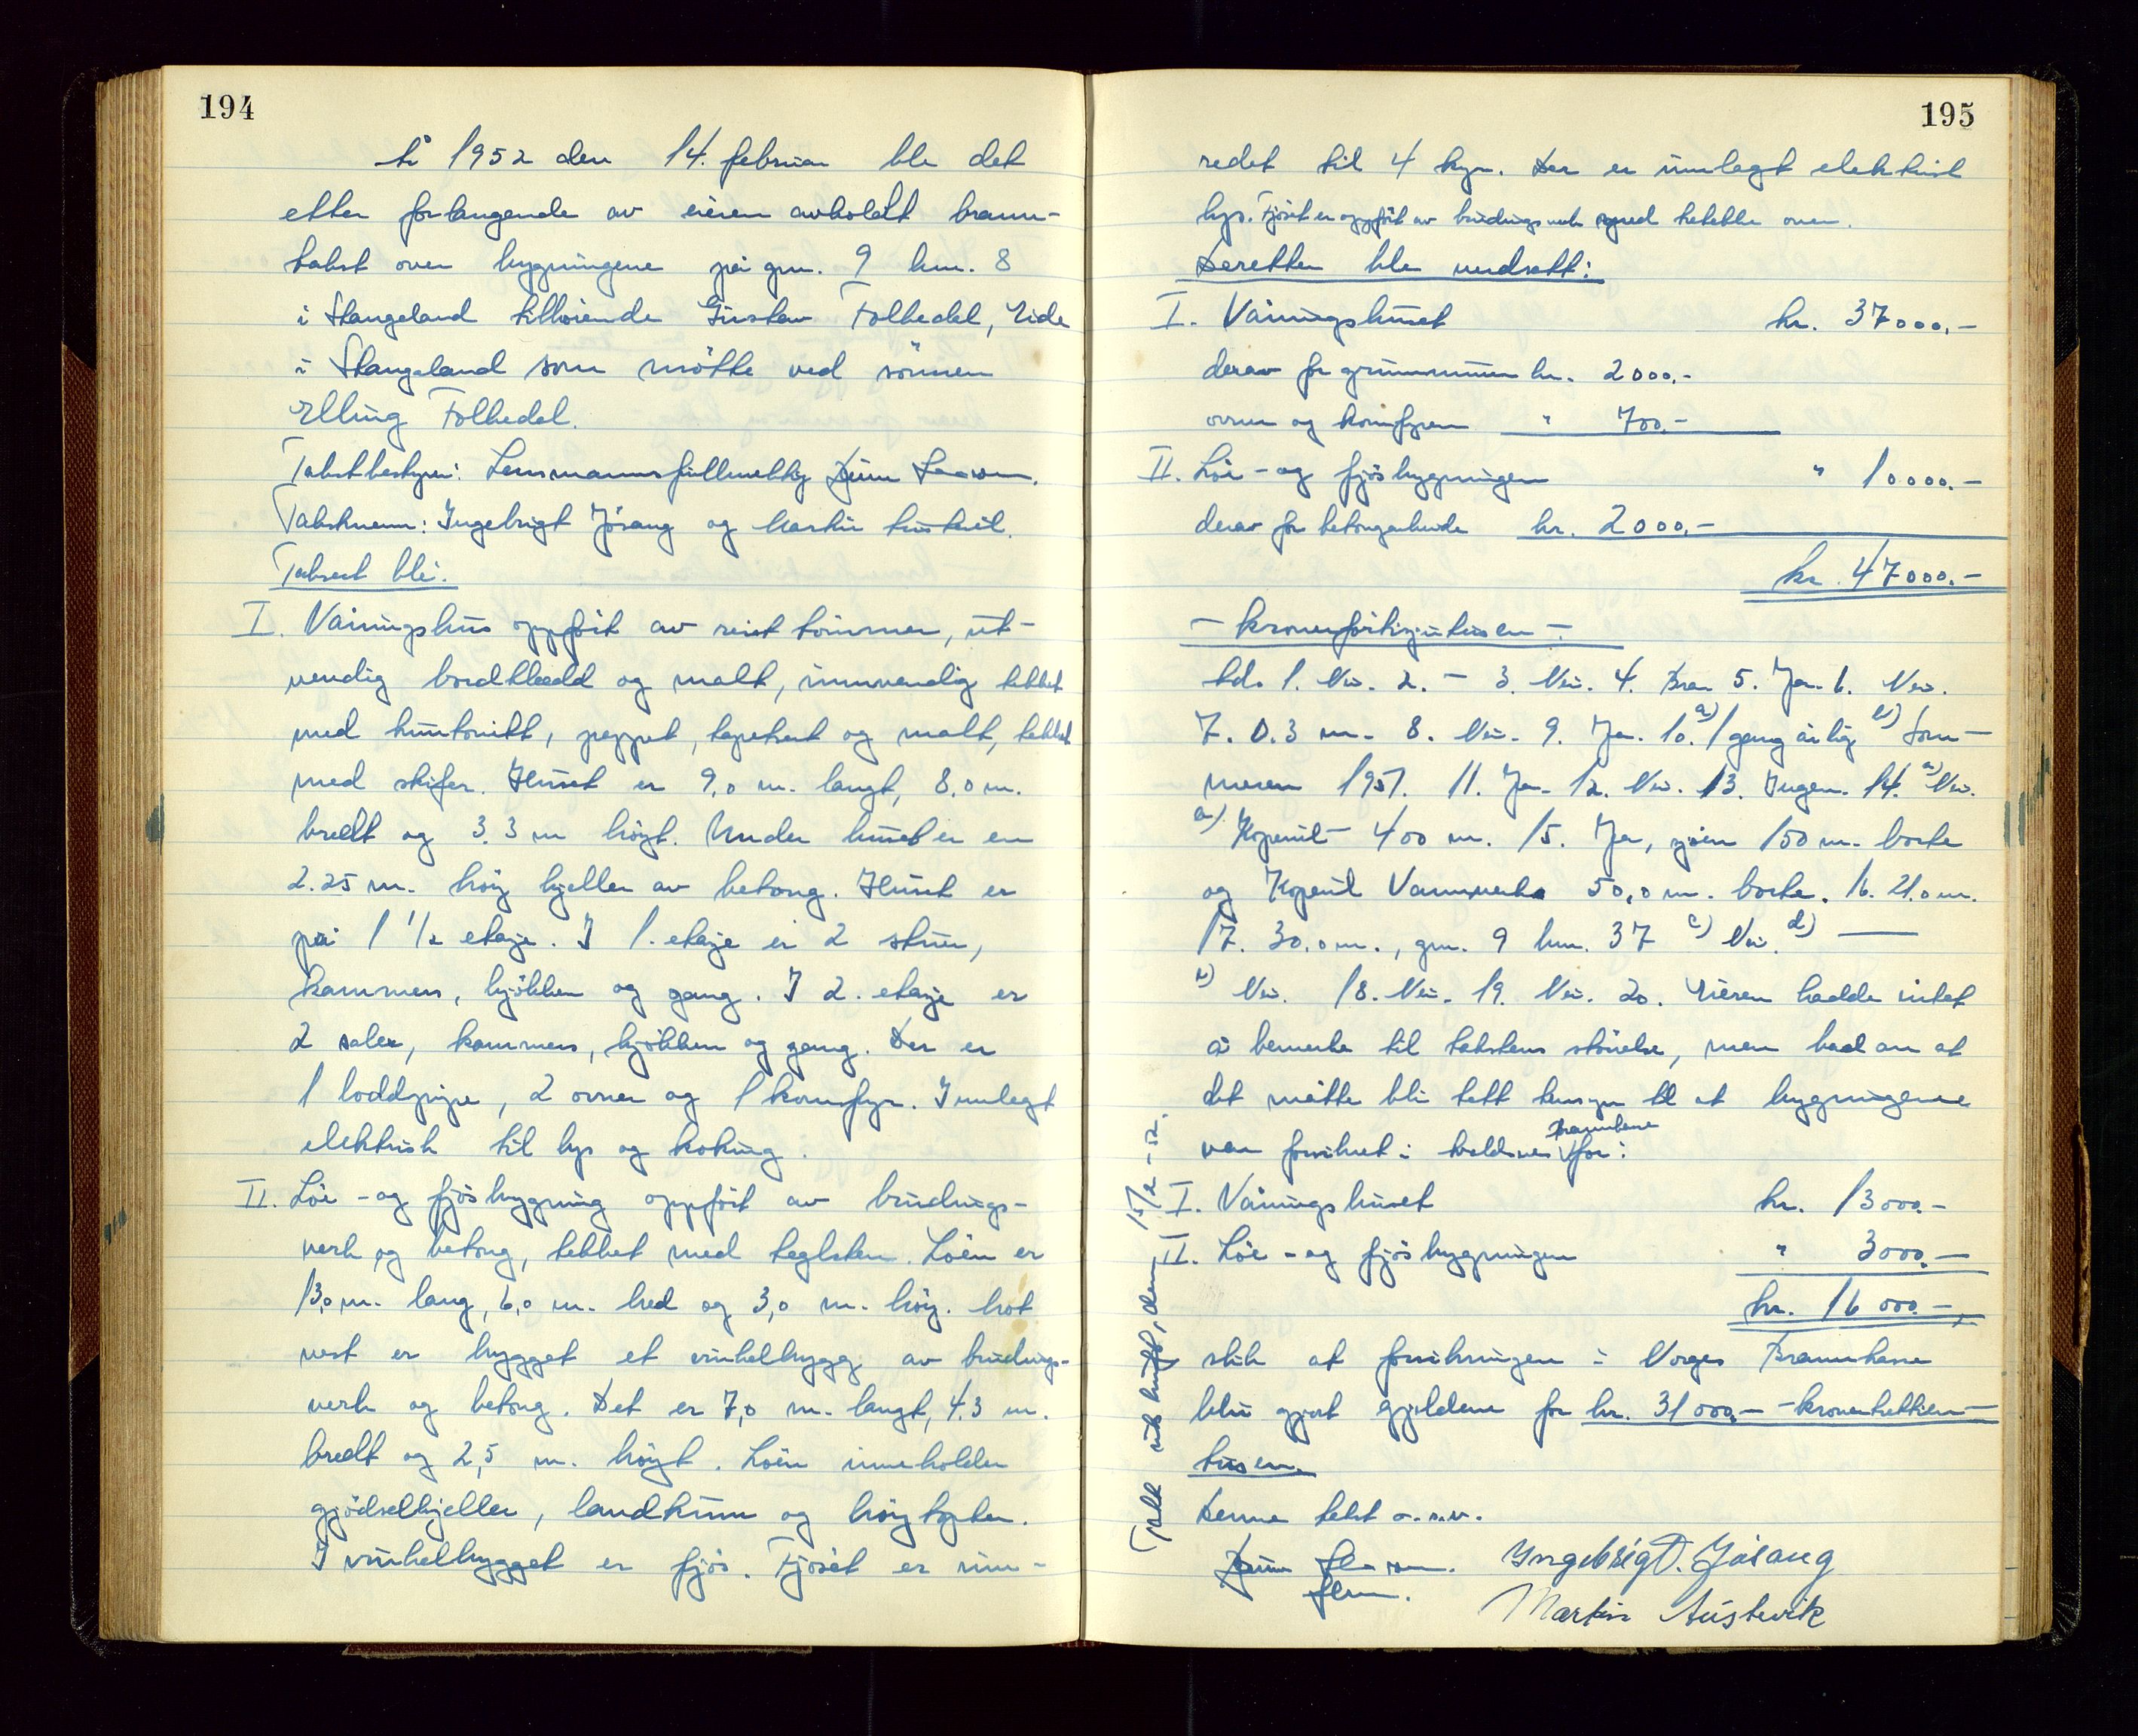 194
År 1952 den 14. februar ble det
etter forlangende av eieren avholdt brann-
takst over bygningene på gnr. 9 bnr. 8
i Stangeland tilhørende Gustav Folkedal, Eide
i Stangeland som møtte ved sønnen
Elling Folkedal.
Takstbestyrer: Lensmannsfullmektig
Takstmenn: Ingebrigt Jösang og Martin Austvik.
Taksert ble:
I. Våningshus oppført av reist tømmer, ut-
vendig bordkledd og malt, innvendig tekket
med huntonitt, pappet, tapetsert og malt, tekket
med skifer. Huset er 9,0 m. langt, 8,0 m.
bredt og 3.3 m høyt. Under huset er en
2.25 m. høy kjeller av betong. Huset er
på 1 1/2 etasje. I 1. etasje er 2 stuer,
kammers, kjøkken og gang. I 2. etasje er
2 saler, kammers, kjøkken og gang. Der er
1 loddpipe, 2 ovner og 1 komfyr. Innlagt
elektrisk til lys og koking.
II. Löe - og fjösbygning oppført av bindings-
verk og betong, tekket med teglsten. Löen er
13,0 m. lang, 6,0 m. bred og 3,0 m. høy. Mot
vest er bygget et vinkelbygg av bindings-
verk og betong. Det er 7,0 m. langt, 4.3 m.
bredt og 2,5 m. høyt. Löen inneholder
gjødselkjeller, landkum og høytopter.
I vinkelbygget er fjös. Fjöset er inn-
195
redet til 4 kyr. Der er innlagt elektrisk
lys. Fjöset er oppført av bindingsverk med over.
Deretter ble verdsatt:
I. Våningshuset kr. 37000.-
derav for grunnmuren kr. 2000.-
ovner og komfyren " 700.-
II. Löe - og fjösbygningen " 10000.-
derav for betongarbeide kr. 2000.-
kr. 47000.-
- kronerførtisjutusen -
1. Nei. 2. - 3. Nei. 4. Bra 5. Ja. 6. Nei.
7. 0.3 m. 8. Nei. 9. Ja. 10. a) 1 gang årlig b) Som-
meren 1951. 11. Ja. 12. Nei. 13. Ingen. 14. a) Nei.
b) Kopervik 400 m. 15. Ja, sjøen 150 m. borte
og Kopervik Vannverk 50,0 m. borte. 16. 21.0 m.
17. 30.0 m., gnr. 9 bnr. 37 c) Nei. d) —
e) Nei. 18. Nei. 19. Nei. 20. Eieren hadde intet
å bemerke til takstens størrelse, men bad om at
det måtte bli tatt hensyn til at bygningene
var forsikret i brannkasse for:
I. Våningshuset kr. 13000.-
II. Löe - og fjösbygningen " 3000.-
kr. 16000.-,
slik at forsikringen i Norges Brannkasse
blir gjort gjeldene for kr. 31000.- -kronertrettien-
tusen.
Denne takst o.s.v.
Ingebrigt. Jösang
flm.
Martin Austvik
Takst utskrift, den 15/2-52.